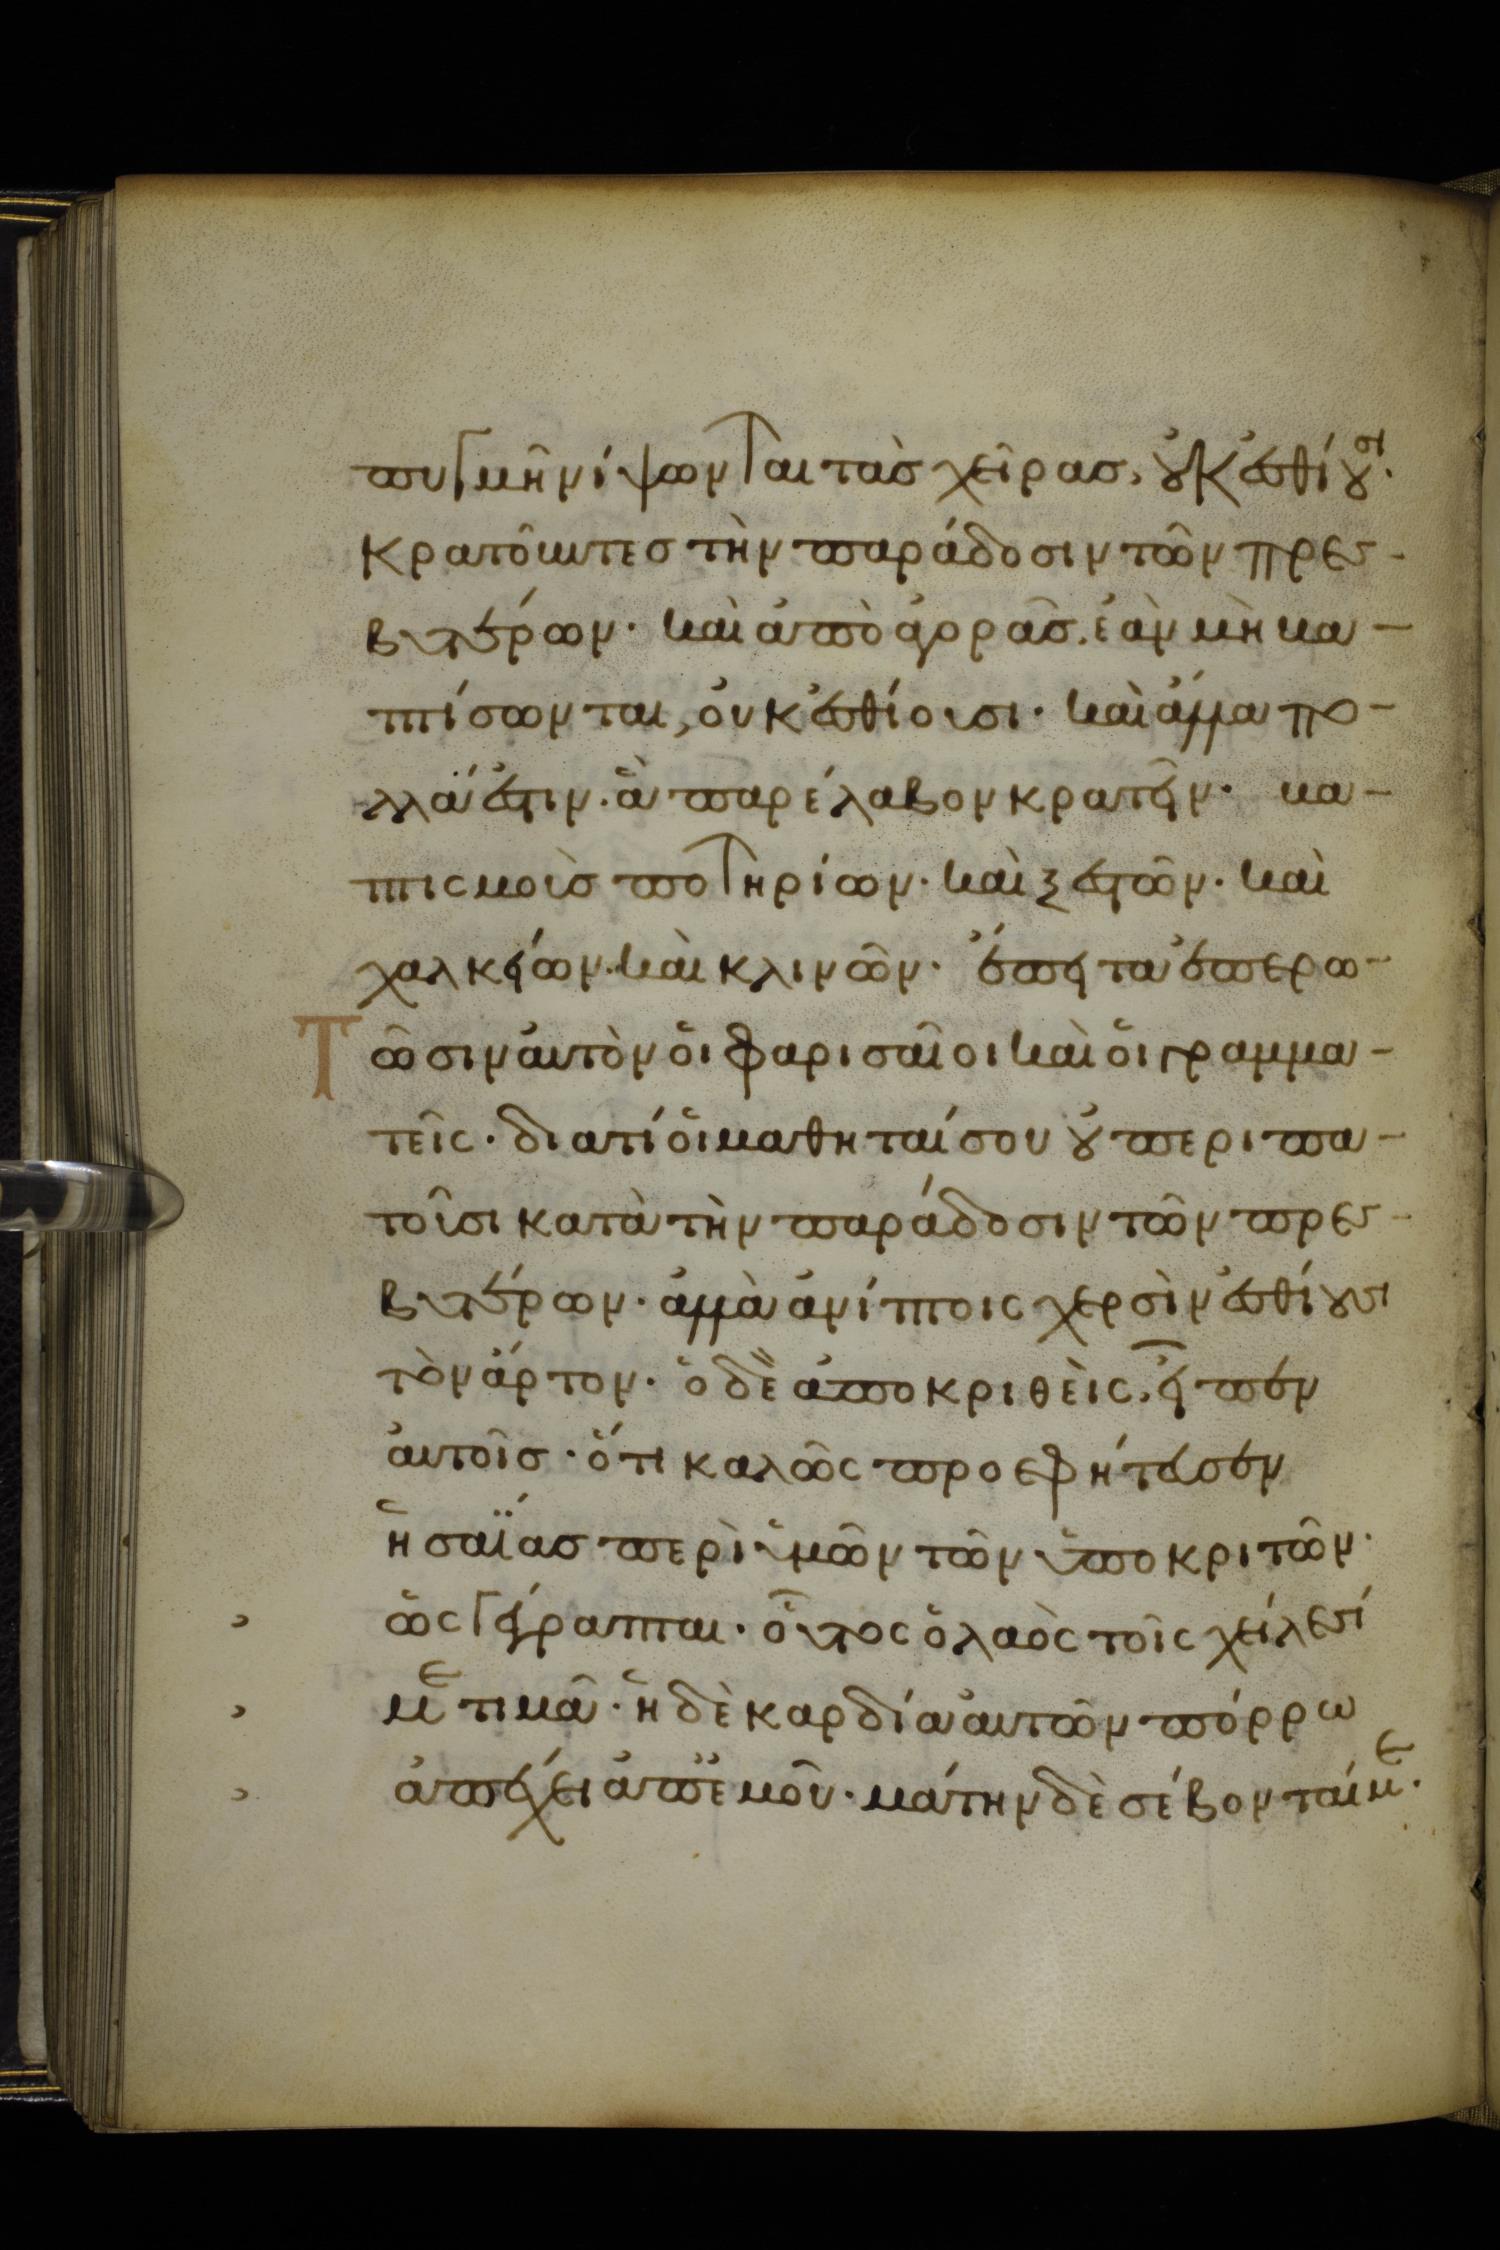 πυγμῆ νίψωνται τὰσ χεῖρασ, οὐκ ἐσθίουσι·
κρατοῦντεσ τὴν παράδοσιν τῶν πρεσ-
βυτέρων· καὶ ἀπὸ ἀγορᾶσ. ἐὰν μὴ βα-
πτίσωνται, οὐκ ἐσθίουσι· καὶ ἄλλα πο-
λλά ἐστιν. ἃ παρέλαβον κρατεῖν· βα-
πτισμοὺσ ποτηρίων· καὶ ξεστῶν· καὶ
χαλκείων· καὶ κλινῶν· ἔπειτα ἐπερω-
Τῶσιν αὐτὸν οἱ φαρισαῖοι καὶ οἱ γραμμα-
τεῖς· διατί οἱ μαθηταί σου οὐ περιπα-
τοῦσι κατὰ τὴν παράδοσιν τῶν πρεσ-
βυτέρων· ἀλλὰ ἀνίπτοις χερσὶν ἐσθίουσι
τὸν ἄρτον· ὁ δὲ ἀποκριθεὶς, εἶπεν
αὐτοῖσ· ὅτι καλῶς προεφήτευσεν
ἡσαΐασ περὶ ὑμῶν τῶν ὑποκριτῶν·
ὡς γέγραπται· οὗτος ὁ λαὸς τοῖς χείλεσί
με τιμᾶ· ἡ δὲ καρδία αὐτῶν πόρρω
ἀπέχει ἀπ' ἐμοῦ· μάτην δὲ σέβονταί με·